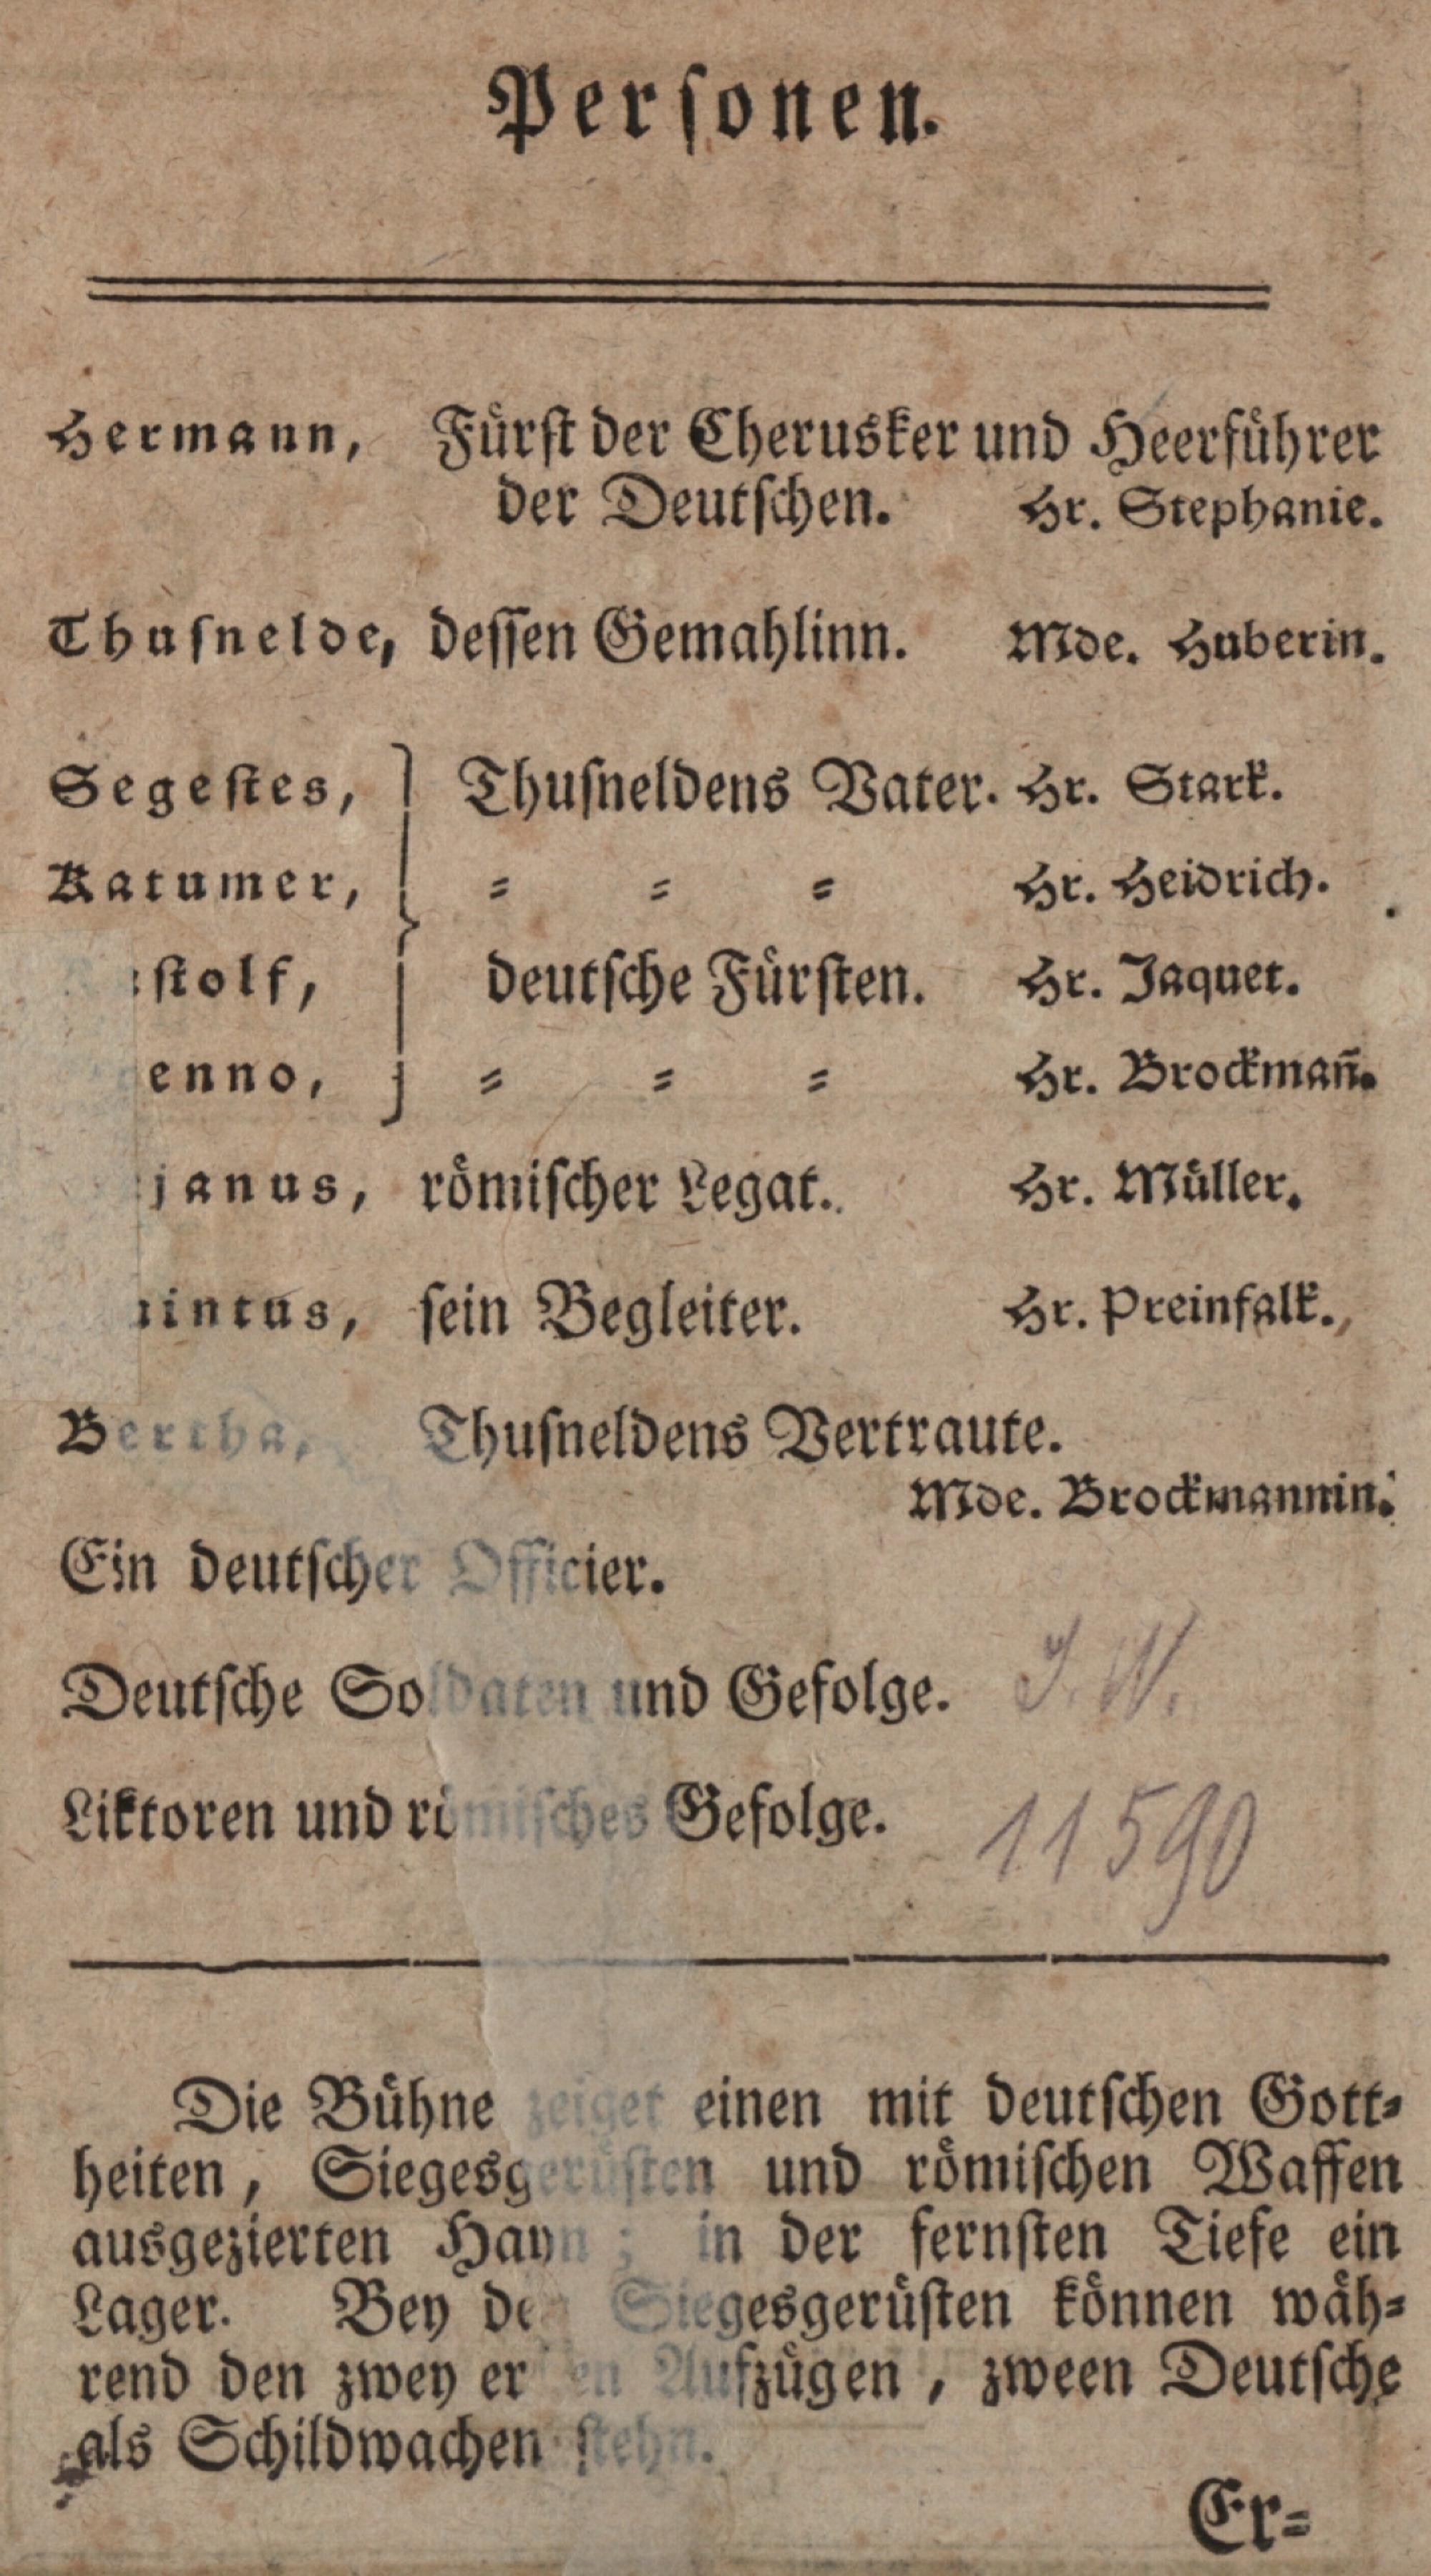 Perſonen.
Hermann, Fürſt der Cherusker und Heerführer
der Deutſchen. Hr. Stephanie.
Thuſnelde, deſſen Gemahlinn. Mde. Huberin.
Segeſtes, Thuſneldens Vater. Hr. Stark.
Katumer, = = = Hr. Heidrich.
ſtolf, deutſche Fürſten. Hr. Jaquet.
enno, = = = Hr. Brockman̄.
janus, römiſcher Legat. Hr. Müller.
intus, ſein Begleiter. Hr. Preinfalk.
Bertha, Thuſneldens Vertraute.
Mde. Brockmannin.
Ein deutſcher Officier.
Deutſche Soldaten und Gefolge. J. W.
Liktoren und römiſches Gefolge. 11590
Die Bühne zeiget einen mit deutſchen Gott=
heiten, Siegesgerüſten und römiſchen Waffen
ausgezierten Hayn; in der fernſten Tiefe ein
Lager. Bey den Siegesgerüſten können wäh=
rend den zwey erſten Aufzügen, zween Deutſche
als Schildwachen ſtehn.
Er=